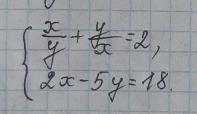 x/y + y/x = 2,
2x - 5y = 18.